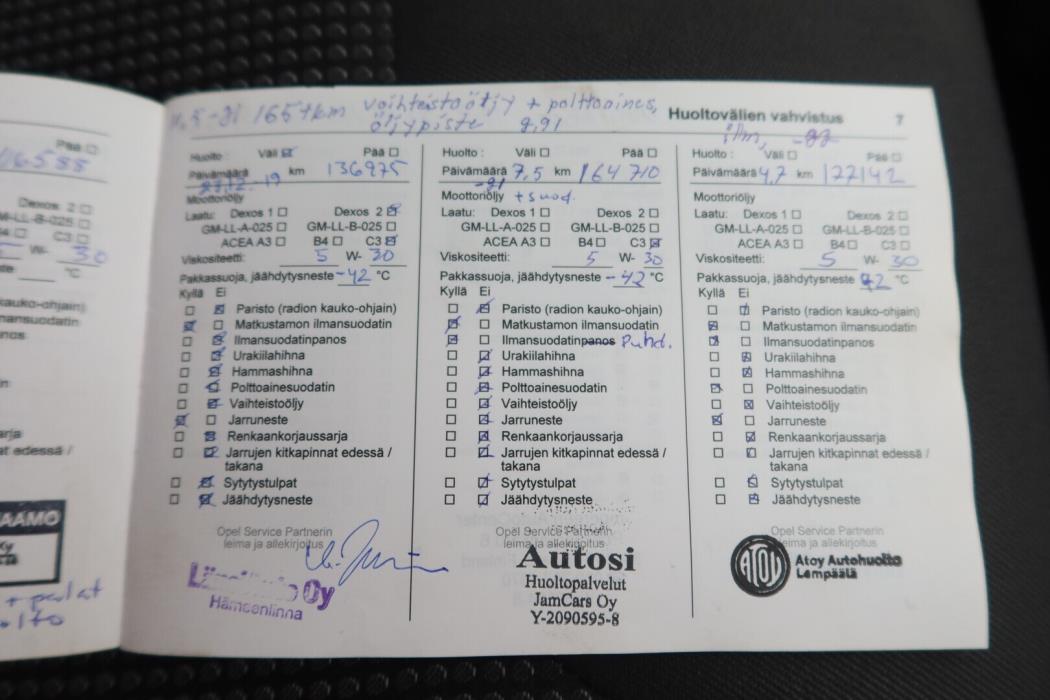 165 tkm vaihteistoöljy + polttoaines,
öljypiste 8,91
Huoltovälien vahvistus 7
Pää ☐
Dexos 2 ☐
GM-LL-B-025 ☐
C3 ☐
W- 30
°C
kauko-ohjain)
+ parlat
Huolto : Väli ☒ Pää ☐
Päivämäärä km 136975
27.12.-19
Moottoriöljy
Laatu: Dexos 1 ☐ Dexos 2 ☒
GM-LL-A-025 ☐ GM-LL-B-025 ☐
ACEA A3 ☐ B4 ☐ C3 ☒
Viskositeetti: 5 W- 30
Pakkassuoja, jäähdytysneste -42 °C
Kyllä Ei
☐ ☒ Paristo (radion kauko-ohjain)
☒ ☐ Matkustamon ilmansuodatin
☐ ☒ Ilmansuodatinpanos
☐ ☒ Urakiilahihna
☐ ☒ Hammashihna
☐ ☒ Polttoainesuodatin
☐ ☒ Vaihteistoöljy
☒ ☐ Jarruneste
☐ ☒ Renkaankorjaussarja
☐ ☒ Jarrujen kitkapinnat edessä /
takana
☐ ☒ Sytytystulpat
☐ ☒ Jäähdytysneste
Opel Service Partnerin
leima ja allekirjoitus
Oy
Hämeenlinna
Huolto : Väli ☐ Pää ☐
Päivämäärä 7,5 km 164 710
-21
Moottoriöljy + suod.
Laatu: Dexos 1 ☐ Dexos 2 ☐
GM-LL-A-025 ☐ GM-LL-B-025 ☐
ACEA A3 ☐ B4 ☐ C3 ☒
Viskositeetti: 5 W- 30
Pakkassuoja, jäähdytysneste -42 °C
Kyllä Ei
☐ ☒ Paristo (radion kauko-ohjain)
☒ ☐ Matkustamon ilmansuodatin
☒ ☐ Ilmansuodatinpanos Puhd.
☐ ☒ Urakiilahihna
☐ ☒ Hammashihna
☐ ☒ Polttoainesuodatin
☐ ☒ Vaihteistoöljy
☐ ☒ Jarruneste
☐ ☒ Renkaankorjaussarja
☐ ☒ Jarrujen kitkapinnat edessä /
takana
☐ ☒ Sytytystulpat
☐ ☒ Jäähdytysneste
Opel Service Partnerin
leima ja allekirjoitus
Autosi
Huoltopalvelut
JamCars Oy
Y-2090595-8
ilm, -22
Huolto : Väli ☐ Pää ☐
Päivämäärä 4,7 km 177142
Moottoriöljy
Laatu: Dexos 1 ☐ Dexos 2 ☐
GM-LL-A-025 ☐ GM-LL-B-025 ☐
ACEA A3 ☐ B4 ☐ C3 ☐
Viskositeetti: 5 W- 30
Pakkassuoja, jäähdytysneste 42 °C
Kyllä Ei
☐ ☒ Paristo (radion kauko-ohjain)
☒ ☐ Matkustamon ilmansuodatin
☒ ☐ Ilmansuodatinpanos
☐ ☒ Urakiilahihna
☐ ☒ Hammashihna
☒ ☐ Polttoainesuodatin
☐ ☒ Vaihteistoöljy
☒ ☐ Jarruneste
☐ ☒ Renkaankorjaussarja
☐ ☒ Jarrujen kitkapinnat edessä /
takana
☐ ☒ Sytytystulpat
☐ ☒ Jäähdytysneste
Opel Service Partnerin
leima ja allekirjoitus
ATOY Atoy Autohuolto
Lempäälä